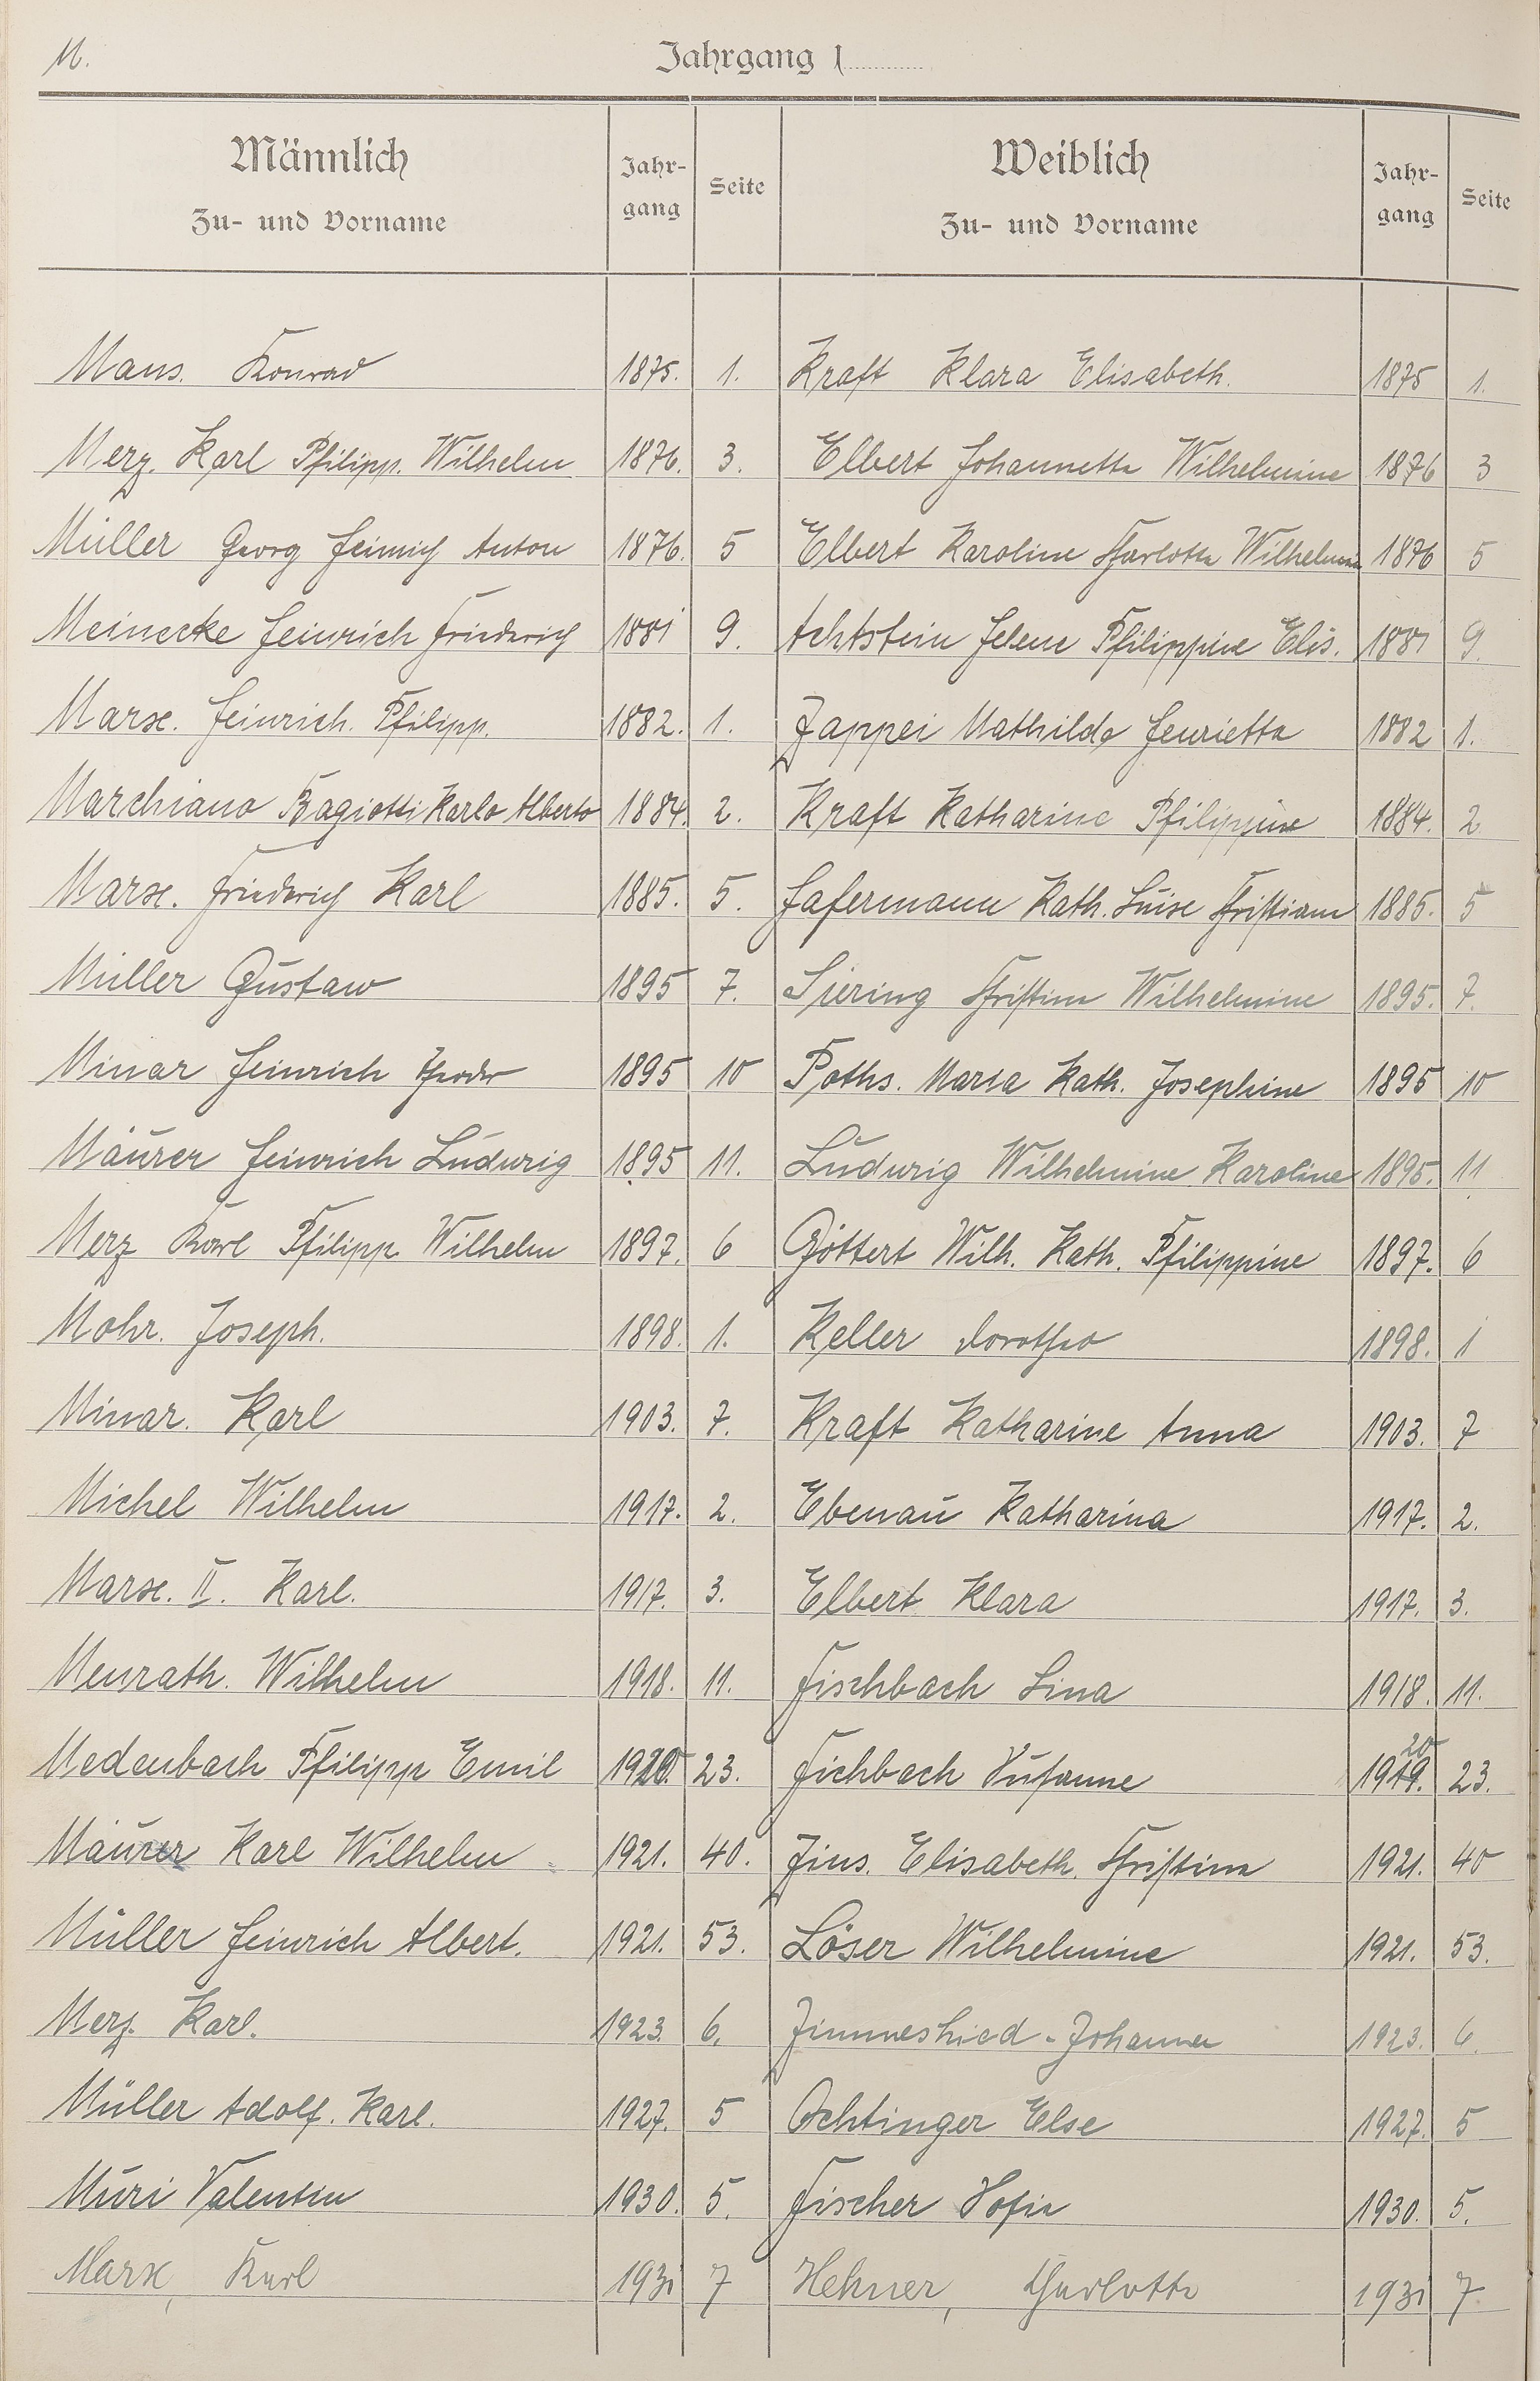 M.
Jahrgang 1
Männlich
Zu- und Vorname
Jahr-
gang
Seite
Weiblich
Zu- und Vorname
Jahr-
gang
Seite
Maus. Konrad 1875. 1. Kraft Klara Elisabeth. 1875 1.
Merz. Karl Philipp. Wilhelm 1876. 3. Elbert Johannette Wilhelmine 1876 3
Müller Georg Heinrich Anton 1876. 5 Elbert Karoline Charlotte Wilhelmine 1876 5
Meinecke Heinrich Friederich 1881 9. Achtstein Helene Philippine Elis. 1881 9.
Marx. Heinrich. Philipp. 1882. 1. Zappei Mathilde Henriette 1882 1.
Marchiana Bagiotti Karlo Alberto 1884. 2. Kraft Katharine Philippine 1884. 2.
Marx. Friederich Karl 1885. 5. Hafermann Kath. Luise Christiane 1885. 5
Müller Gustaw 1895 7. Siering Christine Wilhelmine 1895. 7.
Minar Heinrich Theodor 1895 10 Poths. Maria Kath. Josephine 1895 10
Maurer Heinrich Ludwig 1895 11. Ludwig Wilhelmine Karoline 1895. 11
Merz Karl Philipp Wilhelm 1897. 6 Göttert Wilh. Kath. Philippine 1897. 6
Mohr. Joseph. 1898. 1. Keller Dorothea 1898. 1
Minar. Karl 1903. 7. Kraft Katharine Anna 1903. 7
Michel Wilhelm 1917. 2. Ebenau Katharina 1917. 2.
Marx. II. Karl. 1917. 3. Elbert Klara 1917. 3.
Menrath. Wilhelm 1918. 11. Fischbach Lina 1918. 11.
Medenbach Philipp Emil 1920. 23. Fichbach Susanne 1919. 20 23.
Maurer Karl Wilhelm 1921. 40. Zins. Elisabeth. Christine 1921. 40
Müller Heinrich Albert. 1921. 53. Löser Wilhelmine 1921. 53.
Merz. Karl. 1923. 6. Zimmeshied - Johanna 1923. 6.
Müller Adolf. Karl. 1927. 5 Ochtinger Else 1927. 5
Muri Valentin 1930. 5. Fischer Sofie 1930. 5.
Marx, Karl 1931 7 Hehner, Charlotte 1931 7.